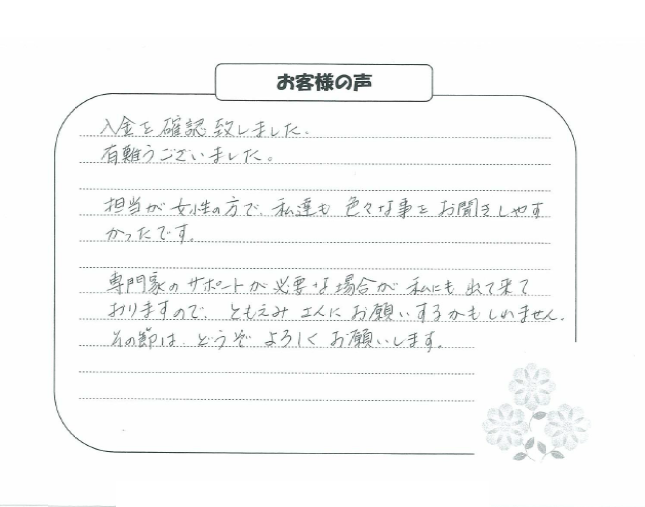 お客様の声
入金を確認致しました。
有難うございました。
担当が女性の方で、私達も色々な事をお聞きしやす
かったです。
専門家のサポートが必要な場合が私にも出て来て
おりますので、ともえみさんにお願いするかもしれません。
その節は、どうぞよろしくお願いします。